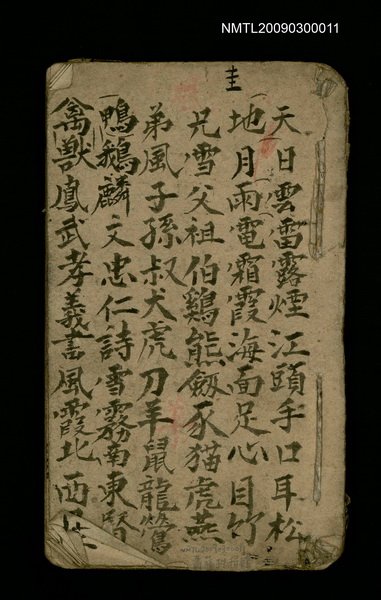 NMTL20090300011
圭
天日雲雷露煙江頭手口耳松
地月雨電霜霞海面足心目竹
兄雪父祖伯鷄熊劔豕猫虎燕
弟風子孫叔犬虎刀羊鼠龍鶯
鴨鵝麟文忠仁詩雪霧南東賢
禽獸鳳武孝義書風霞北西